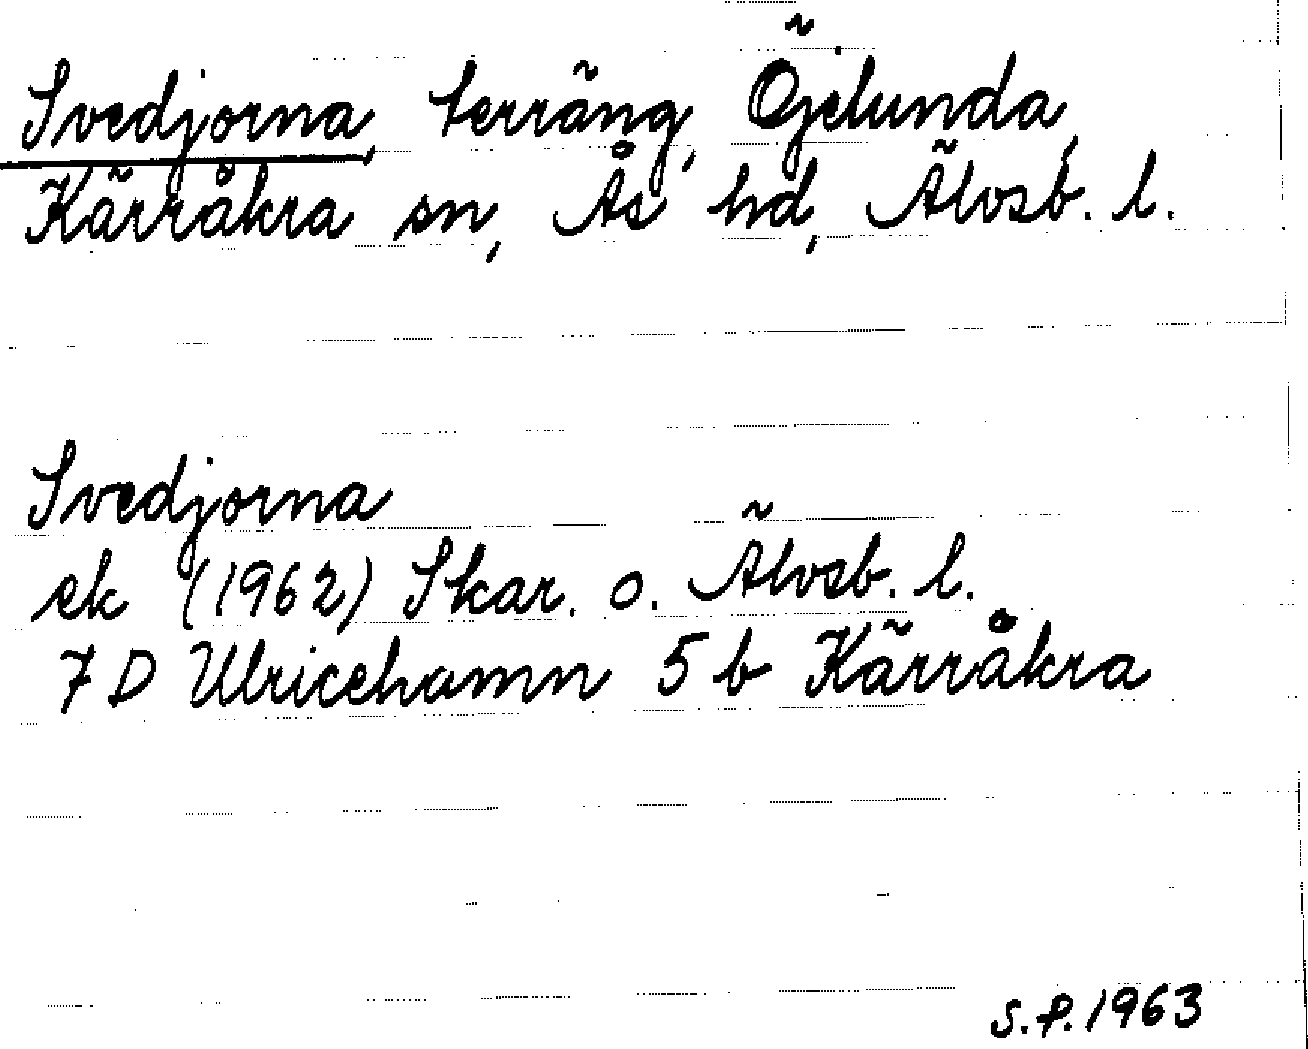 Svedjorna, terräng, Öjelunda,
Kärråkra sn, Ås hd, Älvsb. l.
Svedjorna
ek (1962) Skar. o. Älvsb. l.
7 D Ulricehamn 5 b Kärråkra
S.P. 1963